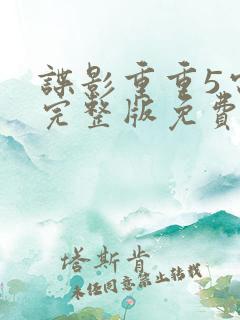 諜影重重5
完整版免費
塔斯肯
未经同意禁止转载